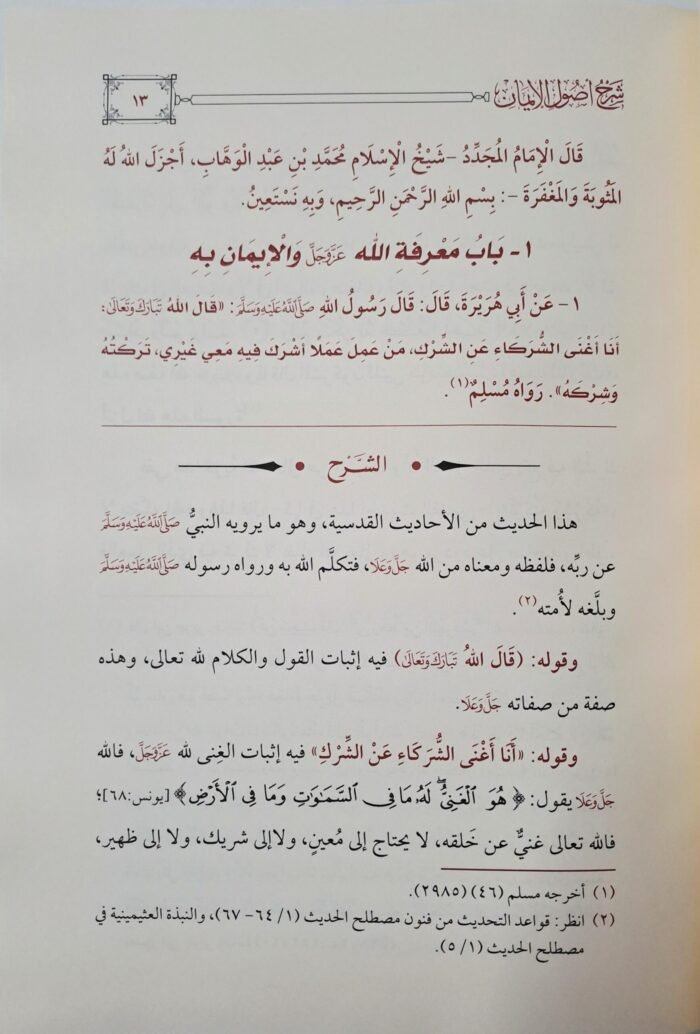 شَرْحُ أُصُولِ الإِيمَانِ
١٣
قَالَ الْإِمَامُ الْمُجَدِّدُ -شَيْخُ الْإِسْلَامِ مُحَمَّدِ بْنِ عَبْدِ الْوَهَّابِ، أَجْزَلَ اللهُ لَهُ
الْمَثُوبَةَ وَالْمَغْفَرَةَ -: بِسْمِ اللهِ الرَّحْمَنِ الرَّحِيمِ، وَبِهِ نَسْتَعِينُ.
١- بَابُ مَعْرِفَةِ الله عَزَّوَجَلَّ وَالْإِيمَانِ بِهِ
١- عَنْ أَبِي هُرَيْرَةَ، قَالَ: قَالَ رَسُولُ اللهِ صَلَّى اللَّهُ عَلَيْهِ وَسَلَّمَ: «قَالَ اللهُ تَبَارَكَ وَتَعَالَى:
أَنَا أَغْنَى الشُّرَكَاءِ عَنِ الشِّرْكِ، مَنْ عَمِلَ عَمَلًا أَشْرَكَ فِيهِ مَعِي غَيْرِي، تَرَكْتُهُ
وَشِرْكَهُ». رَوَاهُ مُسْلِمٌ(١).
الشَّرْح
هذا الحديث من الأحاديث القدسية، وهو ما يرويه النبيُّ صَلَّى اللَّهُ عَلَيْهِ وَسَلَّمَ
عن ربِّه، فلفظه ومعناه من الله جَلَّ وَعَلَا، فتكلَّم الله به ورواه رسوله صَلَّى اللَّهُ عَلَيْهِ وَسَلَّمَ
وبلَّغه لأُمته(٢).
وقوله: (قَالَ اللهُ تَبَارَكَ وَتَعَالَى) فيه إثبات القول والكلام لله تعالى، وهذه
صفة من صفاته جَلَّ وَعَلَا.
وقوله: «أَنَا أَغْنَى الشُّرَكَاءِ عَنْ الشِّرْكِ» فيه إثبات الغِنى لله عَزَّوَجَلَّ، فالله
جَلَّ وَعَلَا يقول: ﴿هُوَ ٱلْغَنِىُّ ۖ لَهُۥ مَا فِى ٱلسَّمَٰوَٰتِ وَمَا فِى ٱلْأَرْضِ﴾ [يونس:٦٨]؛
فالله تعالى غنيٌّ عن خَلقه، لا يحتاج إلى مُعينٍ، ولا إلى شريك، ولا إلى ظهير،
(١) أخرجه مسلم (٤٦) (٢٩٨٥).
(٢) انظر: قواعد التحديث من فنون مصطلح الحديث (١/ ٦٤- ٦٧)، والنبذة العثيمينية في
مصطلح الحديث (١/ ٥).